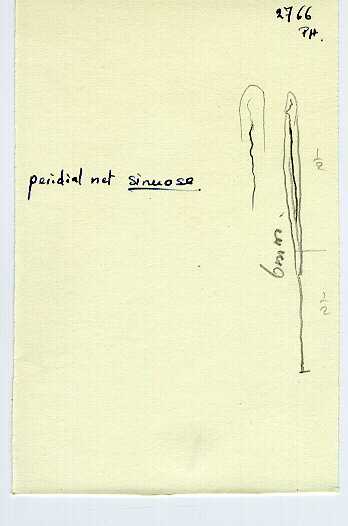 2766
PH.
peridial net sinuose.
1/2
6mm.
1/2